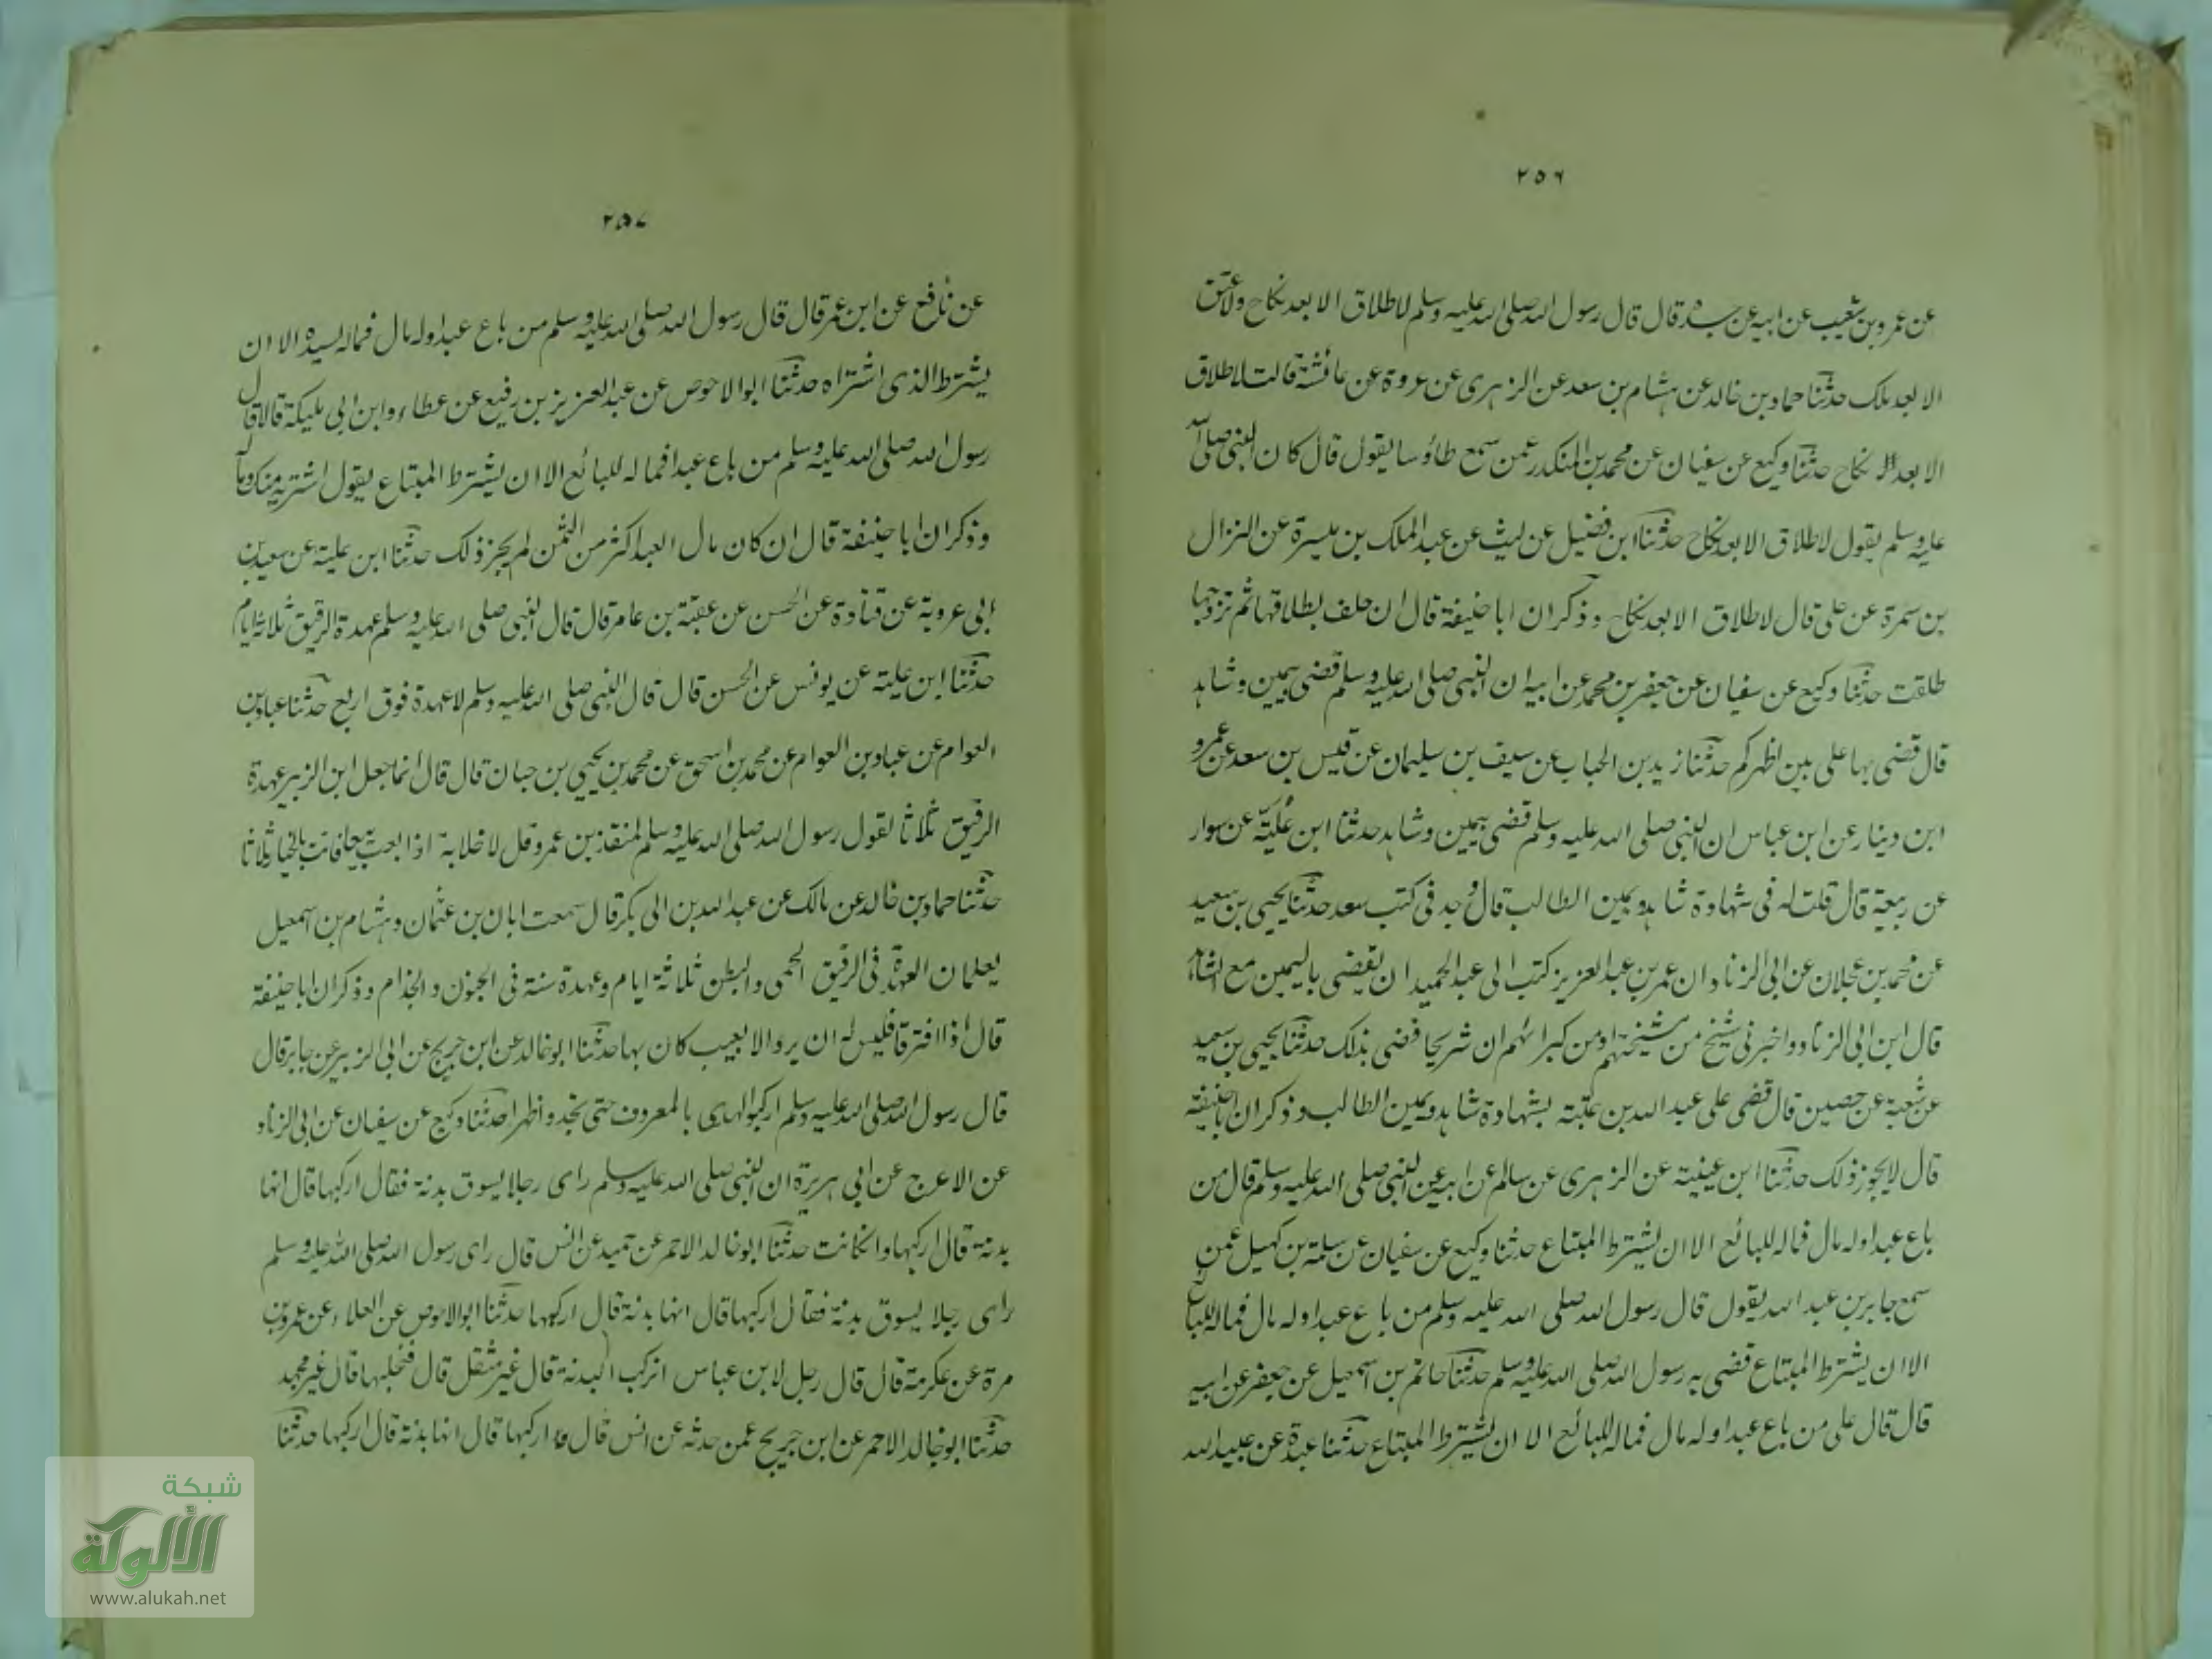 ٢٥٦
عن عمرو بن شعيب عن ابيه عن جده قال قال رسول الله صلى الله عليه وسلم لا طلاق الا بعد نكاح ولا عتق
الا بعد ملك حدثنا حماد بن خالد عن هشام بن سعد عن الزهرى عن عروة عن عائشة قالت لا طلاق
الا بعد نكاح حدثنا وكيع عن سفيان عن محمد بن المنكدر عمن سمع طاؤسا يقول قال كان النبى صلى الله
عليه وسلم يقول لا طلاق الا بعد نكاح حدثنا ابن فضيل عن ليث عن عبد الملك بن ميسرة عن النزال
بن سمرة عن على قال لا طلاق الا بعد نكاح وذكر ان ابا حنيفة قال ان حلف بطلاقها ثم تزوجها
طلقت حدثنا وكيع عن سفيان عن جعفر بن محمد عن ابيه ان النبى صلى الله عليه وسلم قضى بيمين وشاهد
قال قضى بها على بين اظهركم حدثنا زيد بن الحباب عن سيف بن سليمان عن قيس بن سعد عن عمرو
ابن دينار عن ابن عباس ان النبى صلى الله عليه وسلم قضى بيمين وشاهد حدثنا ابن علية عن سوار
عن ربيعة قال قلت له فى شهادة شاهد ويمين الطالب قال وُجد فى كتب سعد حدثنا يحيى بن سعيد
عن محمد بن عجلان عن ابى الزناد ان عمر بن عبد العزيز كتب الى عبد الحميد ان يقضى باليمين مع الشاهد
قال ابن ابى الزناد واخبرنى شيخ من مشيختهم او من كبرائهم ان شريحا قضى بذلك حدثنا يحيى بن سعيد
عن شعبة عن حصين قال قضى على عبد الله بن عتبة بشهادة شاهد ويمين الطالب وذكر ان ابا حنيفة
قال لا يجوز ذلك حدثنا ابن عيينة عن الزهرى عن سالم عن ابيه عن النبى صلى الله عليه وسلم قال من
باع عبدا وله مال فماله للبائع الا ان يشترط المبتاع حدثنا وكيع عن سفيان عن سلمة بن كهيل عمن
سمع جابر بن عبد الله يقول قال رسول الله صلى الله عليه وسلم من باع عبدا وله مال فماله للبائع
الا ان يشترط المبتاع قضى به رسول الله صلى الله عليه وسلم حدثنا حاتم بن اسمعيل عن جعفر عن ابيه
قال قال على من باع عبدا وله مال فماله للبائع الا ان يشترط المبتاع حدثنا عبدة عن عبيد الله
٢٥٧
عن نافع عن ابن عمر قال قال رسول الله صلى الله عليه وسلم من باع عبدا وله مال فماله لسيده الا ان
يشترط الذى اشتراه حدثنا ابو الاحوص عن عبد العزيز بن رفيع عن عطاء وابن ابى مليكة قالا قال
رسول الله صلى الله عليه وسلم من باع عبدا فماله للبائع الا ان يشترط المبتاع يقول اشتريه منك وماله
وذكر ان ابا حنيفة قال ان كان مال العبد اكثر من الثمن لم يجز ذلك حدثنا ابن علية عن سعيد بن
ابى عروبة عن قتادة عن الحسن عن عقبة بن عامر قال قال النبى صلى الله عليه وسلم عهدة الرقيق ثلاثة ايام
حدثنا ابن علية عن يونس عن الحسن قال قال النبى صلى الله عليه وسلم لا عهدة فوق اربع حدثنا عباد بن
العوام عن عباد بن العوام عن محمد بن اسحق عن محمد بن يحيى بن حبان قال قال انما جعل ابن الزبير عهدة
الرقيق ثلاثا لقول رسول الله صلى الله عليه وسلم لمنقذ بن عمرو قل لا خلابة اذا بعت بيعا فانت بالخيار ثلاثا
حدثنا حماد بن خالد عن مالك عن عبد الله بن ابى بكر قال سمعت ابان بن عثمان وهشام بن اسمعيل
يعلمان العهدة فى الرقيق الحمى والبطن ثلاثة ايام وعهدة سنة فى الجنون والجذام وذكر ان ابا حنيفة
قال اذا افترقا فليس له ان يرد الا بعيب كان بها حدثنا ابو خالد عن ابن جريج عن ابى الزبير عن جابر قال
قال رسول الله صلى الله عليه وسلم اركبوا الهدى بالمعروف حتى تجدوا ظهرا حدثنا وكيع عن سفيان عن ابى الزناد
عن الاعرج عن ابى هريرة ان النبى صلى الله عليه وسلم راى رجلا يسوق بدنة فقال اركبها قال انها
بدنة قال اركبها وان كانت حدثنا ابو خالد الاحمر عن حميد عن انس قال راى رسول الله صلى الله عليه وسلم
راى رجلا يسوق بدنة فقال اركبها قال انها بدنة قال اركبها حدثنا ابو الاحوص عن العلاء عن عمرو بن
مرة عن عكرمة قال قال رجل لابن عباس اتركب البدنة قال غير مثقل قال فتحلبها قال غير مجهد
حدثنا ابو خالد الاحمر عن ابن جريج عمن حدثه عن انس قال اركبها قال انها بدنة قال اركبها حدثنا
شبكة
الألوكة
www.alukah.net